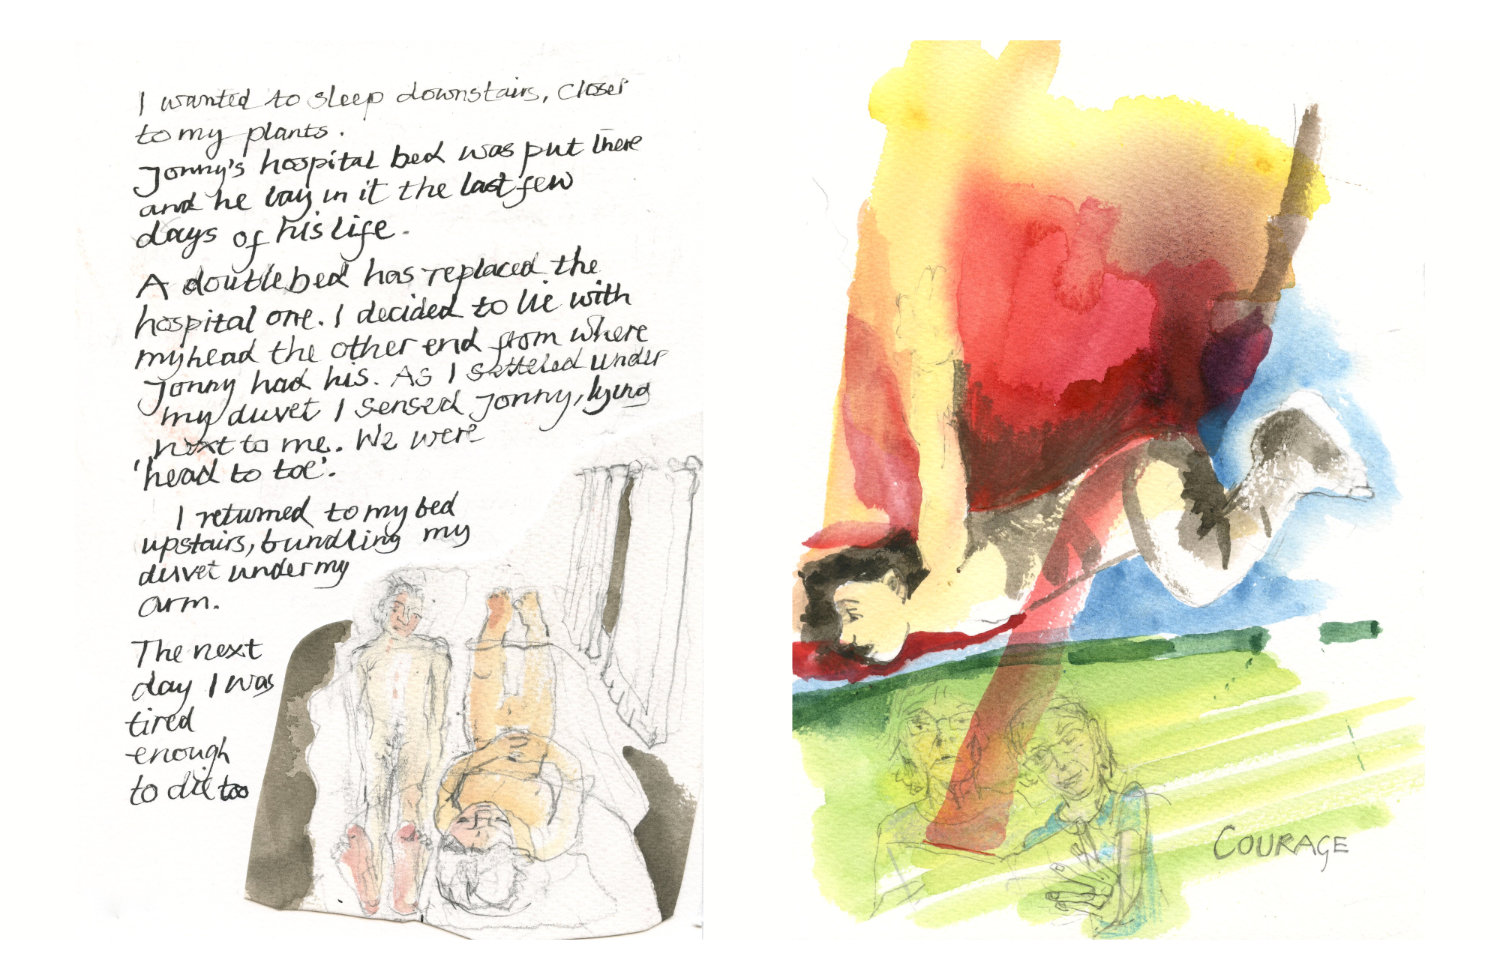 I wanted to sleep downstairs, closer
to my plants.
Jonny's hospital bed was put there
and he lay in it the last few
days of his life.
A double bed has replaced the
hospital one. I decided to lie with
my head the other end from where
Jonny had his. As I settled under
my duvet I sensed Jonny, lying
next to me. We were
'head to toe'.
I returned to my bed
upstairs, bundling my
duvet under my
arm.
The next
day I was
tired
enough
to die too
COURAGE